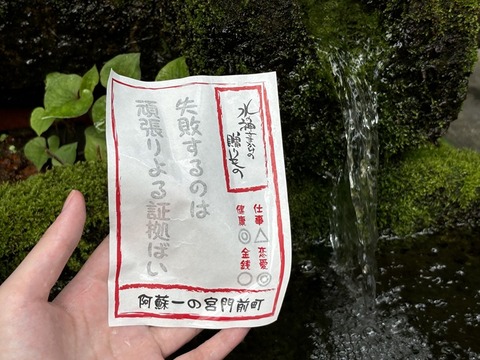 水神さまからの
贈りもの
失敗するのは
頑張りよる証拠ばい
仕事△
恋愛◎
健康◎
金銭○
阿蘇一の宮門前町